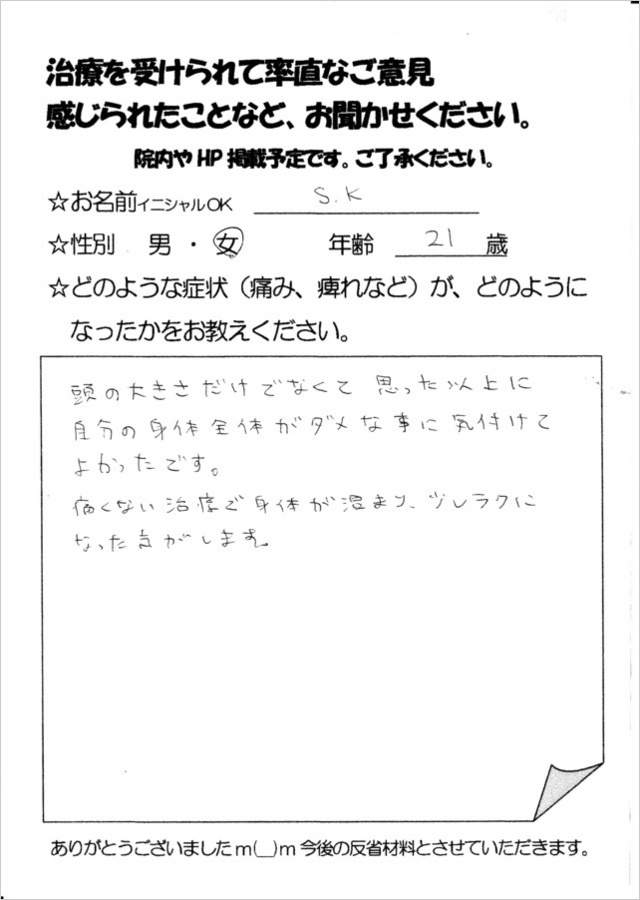 治療を受けられて率直なご意見
感じられたことなど、お聞かせください。
院内やHP掲載予定です。ご了承ください。
☆お名前イニシャルOK S.K
☆性別 男・女 年齢 21 歳
☆どのような症状（痛み、痺れなど）が、どのように
なったかをお教えください。
頭の大きさだけでなくて 思った以上に
自分の身体全体がダメな事に気付けて
よかったです。
痛くない治療で身体が温まり、少しラクに
なった気がします。
ありがとうございましたm(__)m今後の反省材料とさせていただきます。